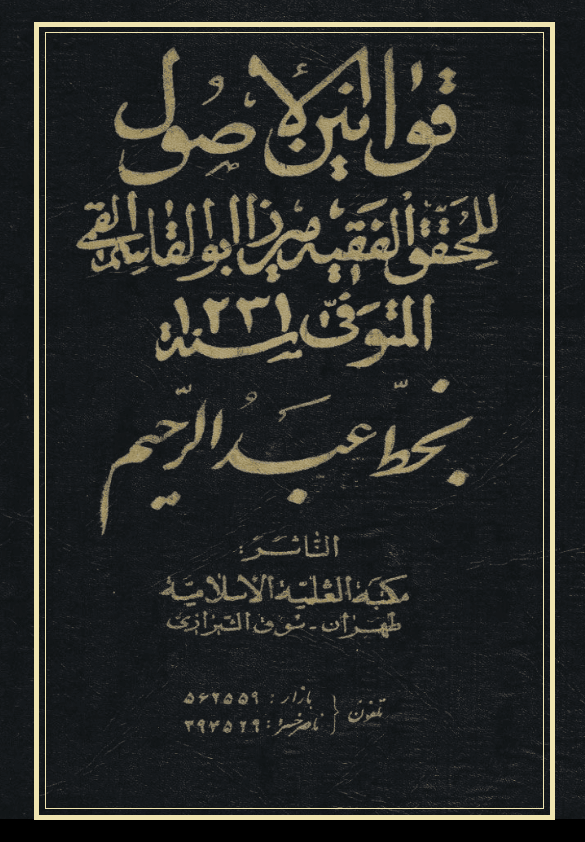 قوانين الاصول
للمحقق الفقيه ميرزا ابوالقاسم القمي
المتوفى سنة ۱۲۳۱
بخط عبدالرحيم
الناشر:
مكتبة العلمية الاسلامية
طهران - سوق الشيرازي
تلفون { بازار : ۵۶۲۵۵۹
ناصرخسرو : ۳۹۳۵۲۹